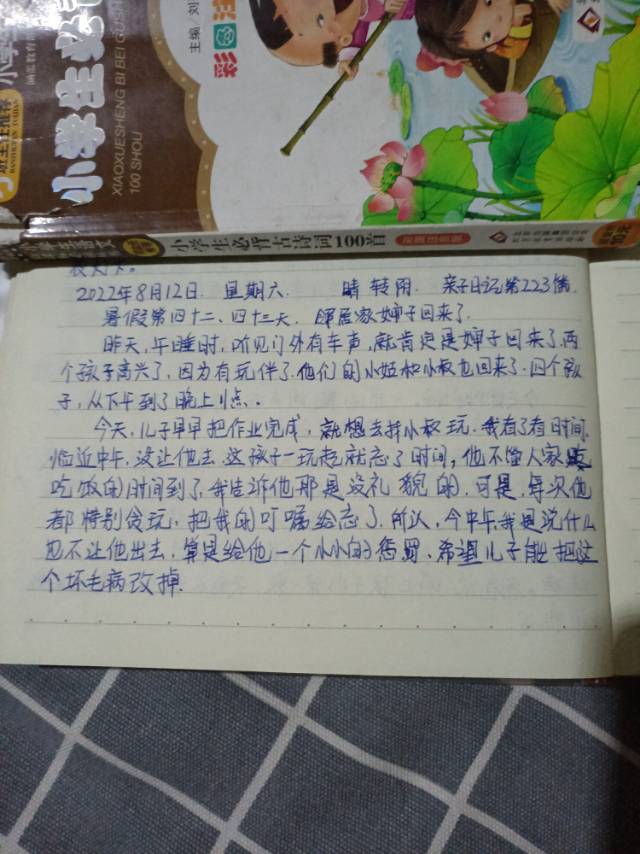 小学生必
XIAOXUESHENG BI BEI GUS
100 SHOU
班主任推荐
主编/刘
彩图注
小学生必背古诗词100首
2022年8月12日. 星期六. 晴转阴. 亲子日记第223篇
暑假第四十二、四十三天, 邻居家婶子回来了.
昨天,午睡时,听见门外有车声,就肯定是婶子回来了,两
个孩子高兴了,因为有玩伴了.他们的小姑和小叔也回来了.四个孩
子,从下午到了晚上9点.
今天,儿子早早把作业完成,就想去找小叔玩.我看了看时间,
临近中午,没让他去.这孩子一玩起就忘了时间,他不管人家
吃饭的时间到了,我告诉他那是没礼貌的.可是,每次他
都特别贪玩,把我的叮嘱给忘了.所以,今中午我是说什么
也不让他出去,算是给他一个小小的惩罚.希望儿子能把这
个坏毛病改掉.